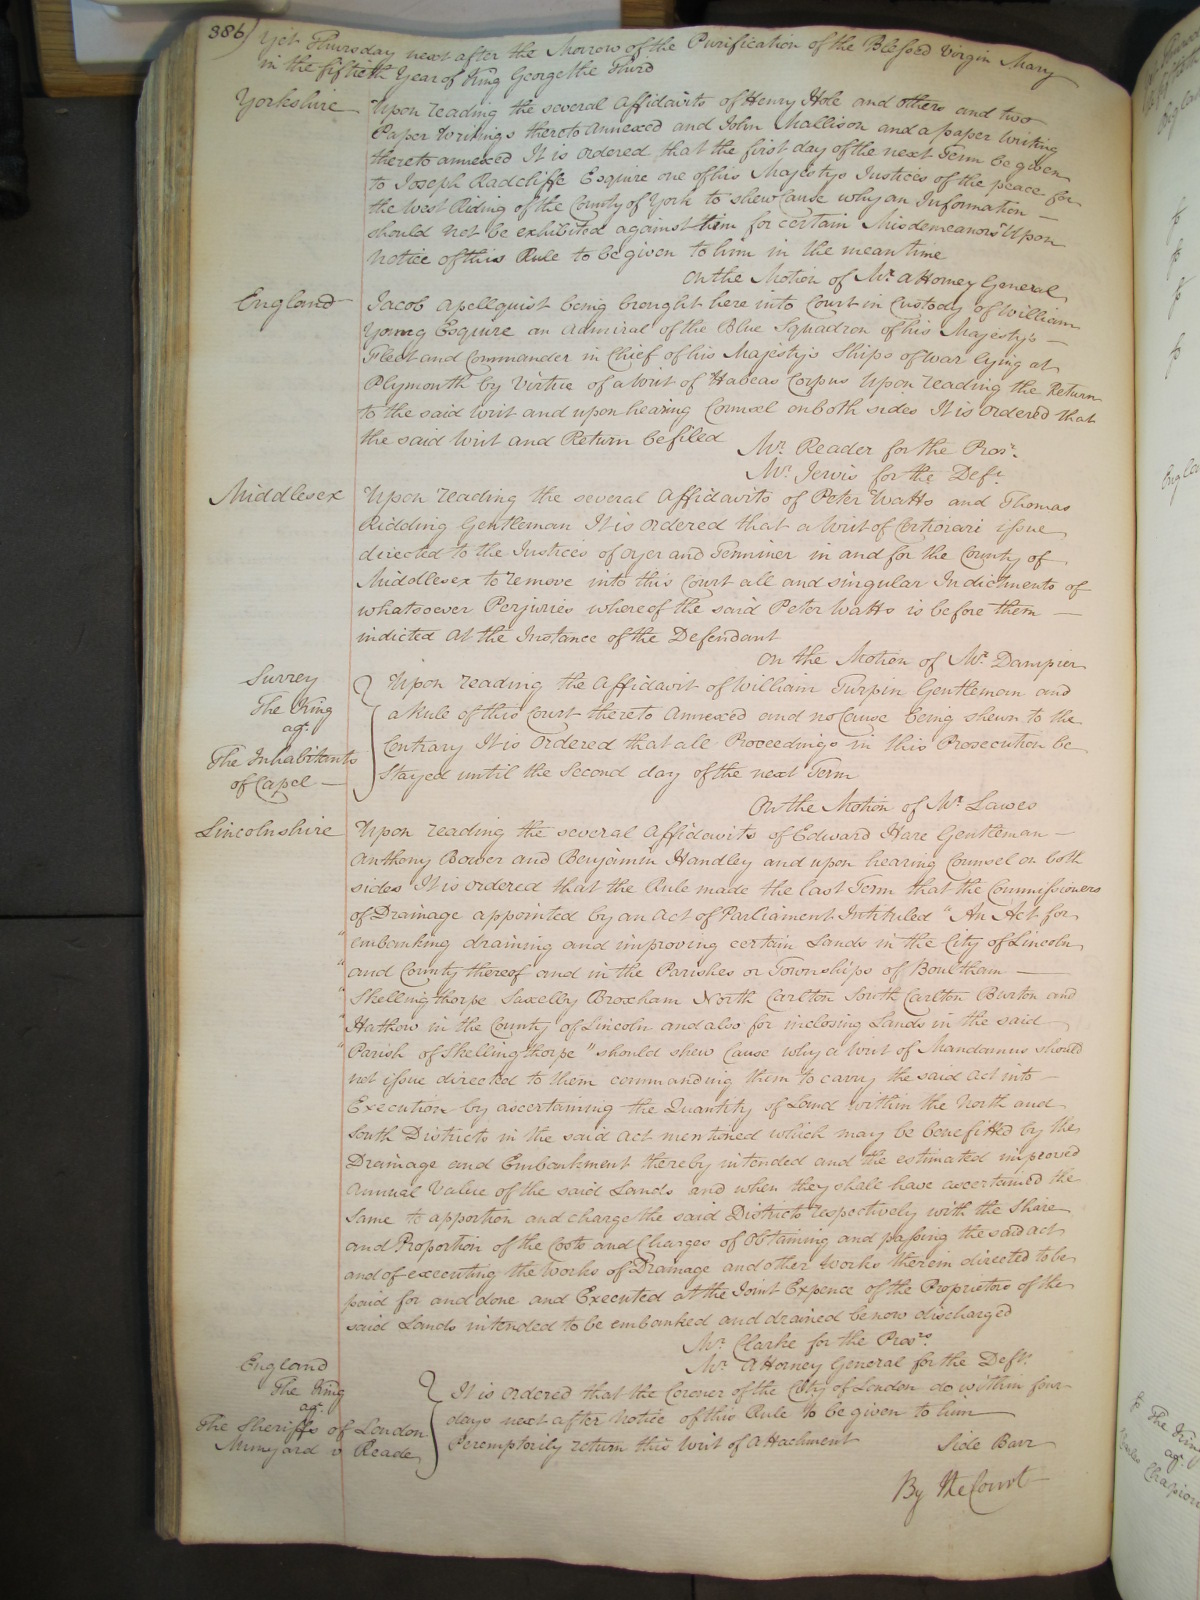 386)
Yet Thursday next after the Morrow of the Purification of the Blessed Virgin Mary
in the fiftieth Year of King George the Third
Yorkshire Upon reading the several Affidavits of Henry Hole and others and two
Paper Writings thereto annexed and John Mallison and a paper Writing
thereto annexed It is ordered that the first day of the next Term be given
to Joseph Radcliffe Esquire one of his Majestys Justices of the peace for
the West Riding of the County of York to shew Cause why an Information –
should not be exhibited against him for certain Misdemeanors Upon
Notice of this Rule to be given to him in the mean time
On the Motion of Mr. Attorney General
England Jacob Apellquist being brought here into Court in Custody of William
Young Esquire an Admiral of the Blue Squadron of his Majestys –
Fleet and Commander in Chief of his Majestys Ships of War lying at
Plymouth by Virtue of a Writ of Habeas Corpus Upon reading the Return
to the said Writ and upon hearing Counsel on both sides It is ordered that
the said Writ and Return be filed
Mr. Reader for the Pros.r
Mr. Jervis for the Def.t
Middlesex Upon reading the several Affidavits of Peter Watts and Thomas
Ridding Gentleman It is ordered that a Writ of Certiorari issue
directed to the Justices of Oyer and Terminer in and for the County of
Middlesex to remove into this Court all and singular Indictments of
whatsoever Perjuries whereof the said Peter Watts is before them –
indicted At the Instance of the Defendant
On the Motion of Mr. Dampier
Surrey
The King
agt.
The Inhabitants
of Capel –
Upon reading the Affidavit of William Turpin Gentleman and
a Rule of this Court thereto Annexed and no Cause being shewn to the
Contrary It is Ordered that all Proceedings in this Prosecution be
Stayed until the Second day of the next Term
On the Motion of Mr. Lawes
Lincolnshire Upon reading the several Affidavits of Edward Hare Gentleman –
Anthony Bower and Benjamin Handley and upon hearing Counsel on both
sides It is ordered that the Rule made the last Term that the Commissioners
of Drainage appointed by an Act of Parliament Intituled "An Act for
"embanking draining and improving certain Lands in the City of Lincoln
"and County thereof and in the Parishes or Townships of Boultham –
"Skellingthorpe Saxelby Broxham North Carlton South Carlton Burton and
"Hathow in the County of Lincoln and also for inclosing Lands in the said
"Parish of Skellingthorpe" should shew Cause why a Writ of Mandamus should
not issue directed to them commanding them to carry the said Act into –
Execution by ascertaining the Quantity of Land within the North and
South Districts in the said Act mentioned which may be benefitted by the
Drainage and Embankment thereby intended and the estimated improved
Annual Value of the said Lands and when they shall have ascertained the
Same to apportion and charge the said Districts respectively with the Share
and Proportion of the Costs and Charges of Obtaining and passing the said Act
and of executing the Works of Drainage and other Works therein directed to be
paid for and done and Executed at the Joint Expence of the Proprietors of the
said Lands intended to be embanked and drained be now discharged
Mr. Clarke for the Pros.rs
Mr. Attorney General for the Def.ts
England
The King
agt.
The Sheriffs of London
Minyard v Reade
It is ordered that the Coroner of the City of London do within four
days next after Notice of this Rule to be given to him
Peremptorily return this Writ of Attachment Side Barr
By the Court